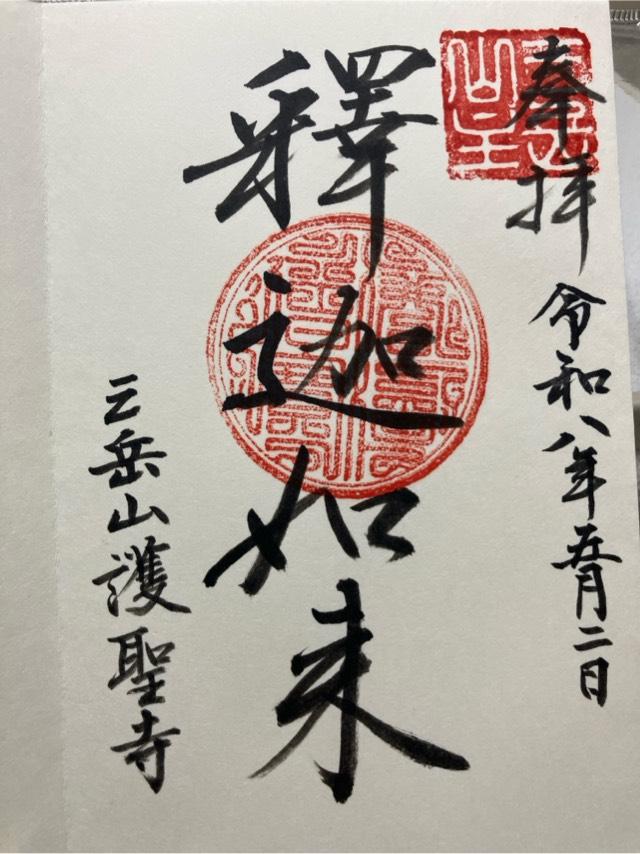 奉拝
令和八年五月二日
釋迦如来
三岳山護聖寺